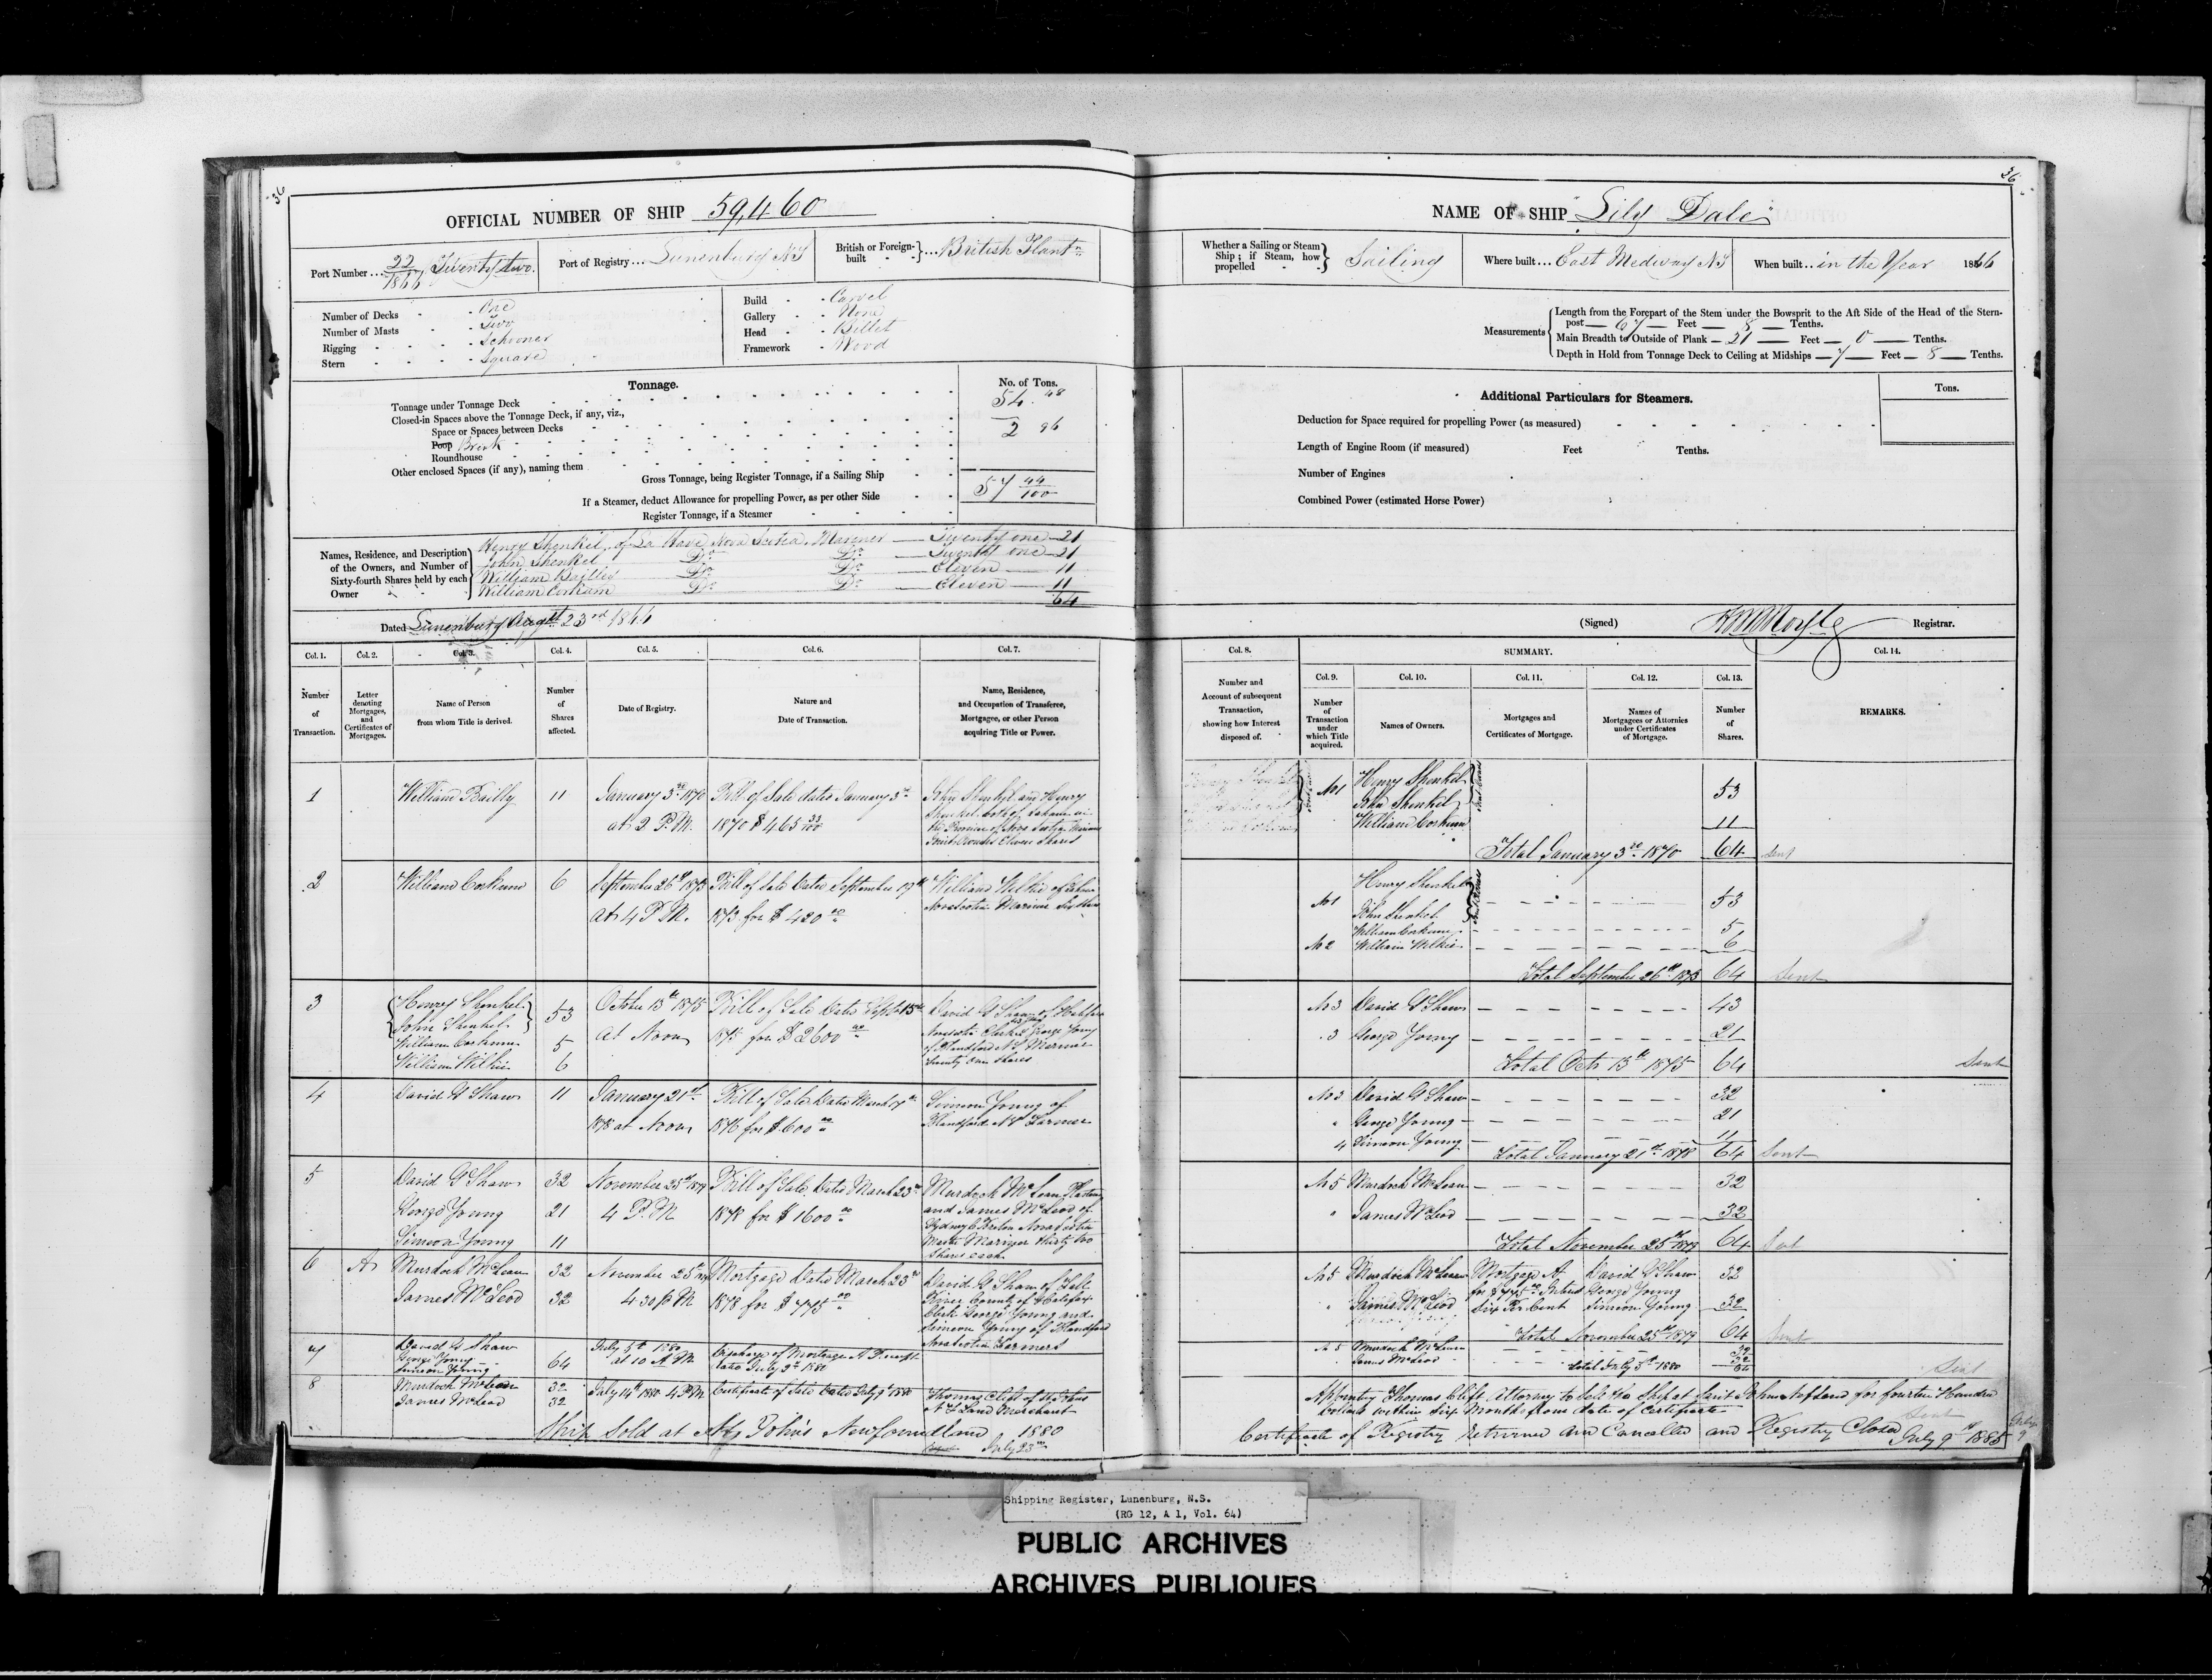 36
OFFICIAL NUMBER OF SHIP 59,460
Port Number ... 22/1866 Twenty two.
Port of Registry ... Lunenburg NS
British or Foreign-built } ... British Plantn
Number of Decks - - One
Number of Masts - - Two
Rigging - - - - Schooner
Stern - - - - Square
Build - - Carvel
Gallery - - None
Head - - Billet
Framework - Wood
Tonnage.
No. of Tons.
Tonnage under Tonnage Deck 54.48
Closed-in Spaces above the Tonnage Deck, if any, viz.,
Space or Spaces between Decks
Poop Break 2 96
Roundhouse
Other enclosed Spaces (if any), naming them
Gross Tonnage, being Register Tonnage, if a Sailing Ship 57 44/100
If a Steamer, deduct Allowance for propelling Power, as per other Side
Register Tonnage, if a Steamer
Names, Residence, and Description of the Owners, and Number of Sixty-fourth Shares held by each Owner
Henry Shenkel, of La Have Nova Scotia, Mariner — Twenty one — 21
John Shenkel Do Do — Twenty one — 21
William Bailley Do Do — Eleven — 11
William Corkum Do Do — Eleven — 11
64
Dated Lunenburg Augst 23rd 1866
Col. 1. Col. 2. Col. 3. Col. 4. Col. 5. Col. 6. Col. 7.
Number of Transaction.
Letter denoting Mortgages, and Certificates of Mortgages.
Name of Person from whom Title is derived.
Number of Shares affected.
Date of Registry.
Nature and Date of Transaction.
Name, Residence, and Occupation of Transferee, Mortgagee, or other Person acquiring Title or Power.
1 William Bailly 11 January 3rd 1870 at 2 P.M.
Bill of Sale dated January 3rd 1870 $465 33/100
John Shenkel and Henry Shenkel both of
the Province of Nova Scotia Mariners
Joint Owners Eleven Shares
2 William Corkum 6 September 26th 1873 At 4 P.M.
Bill of Sale dated September 19th 1873 for $420 00
William Wilkie of
Novascotia Mariner Six Shares
3 { Henry Shenkel John Shenkel } 53
William Corkum 5
William Wilkie 6
October 13th 1875 At Noon
Bill of Sale dated Sept 15th 1875 for $2600 00
David G Shaw of Halifax
Novascotia Clerk & George Young
of Blandford N.S. Mariner
twenty one shares
4 David G Shaw 11 January 21st 1878 at Noon
Bill of Sale dated March 17th 1876 for $600 00
Simeon Young of
Blandford NS Farmer
5 David G Shaw 32
George Young 21
Simeon Young 11
November 25th 1879 4 P.M
Bill of Sale dated March 23rd 1878 for $1600 00
Murdock McLean
and James McLeod of
Sydney C Breton Novascotia
Master Mariner thirty two
Shares each
6 A Murdock McLean 32
James McLeod 32
November 25th 1879 4 30 P M
Mortgage dated March 23rd 1878 for $775 00
David G Shaw of Fall
River County of Halifax
Clerk George Young and
Simeon Young of Blandford
Novascotia Farmers
7 David G Shaw
George Young
Simeon Young 64
July 5th 1880 at 10 A M
Discharge of Mortgage A Receipt
dated July 3rd 1880
8 Murdock McLean 32
James McLeod 32
July 14th 1880 4 P M
Certificate of Sale dated July 9th 1880
Thomas Clift of St Johns
N F Land Merchant
Ship Sold at St John's Newfoundland 1880
July 23rd
36
NAME OF SHIP "Lily Dale"
Whether a Sailing or Steam Ship; if Steam, how propelled } Sailing
Where built ... East Medway NS
When built .. in the Year 1866
Measurements
Length from the Forepart of the Stem under the Bowsprit to the Aft Side of the Head of the Stern-
post — 67 — Feet — 8 — Tenths.
Main Breadth to Outside of Plank — 21 — Feet — 0 — Tenths.
Depth in Hold from Tonnage Deck to Ceiling at Midships — 7 — Feet — 8 — Tenths.
Additional Particulars for Steamers.
Tons.
Deduction for Space required for propelling Power (as measured)
Length of Engine Room (if measured) Feet Tenths.
Number of Engines
Combined Power (estimated Horse Power)
(Signed) Registrar.
Col. 8. SUMMARY. Col. 14.
Col. 9. Col. 10. Col. 11. Col. 12. Col. 13.
Number and Account of subsequent Transaction, showing how Interest disposed of.
Number of Transaction under which Title acquired.
Names of Owners.
Mortgages and Certificates of Mortgage.
Names of Mortgagees or Attornies under Certificates of Mortgage.
Number of Shares.
REMARKS.
No 1 Henry Shenkel
John Shenkel 53
William Corkum 11
Total January 3rd 1870 64 Sent
No 1 Henry Shenkel
John Shenkel 53
William Corkum 5
No 2 William Wilkie 6
Total September 26th 1873 64 Sent
No 3 David G Shaw 43
3 George Young 21
Total Octr 13th 1875 64 Sent
No 3 David G Shaw 32
" George Young 21
4 Simeon Young 11
Total January 21st 1878 64 Sent
No 5 Murdock McLean 32
" James McLeod 32
Total November 25th 1879 64 Sent
No 5 Murdock McLean Mortgage A David G Shaw 32
for $775 00 Intrest George Young
" James McLeod Six Per Cent Simeon Young 32
Total November 25th 1879 64 Sent
No 5 Murdock McLean 32
James McLeod 32
Total July 5th 1880 64 Sent
Appointing Thomas Clift Attorney to Sell the Ship at Saint Johns Nfland for fourteen Hundred
Dollars within Six Months from date of Certificate Sent
Certificate of Registry returned and Cancelled and Registry Closed July 9th 1885
Shipping Register, Lunenburg, N.S.
(RG 12, A 1, Vol. 64)
PUBLIC ARCHIVES
ARCHIVES PUBLIQUES